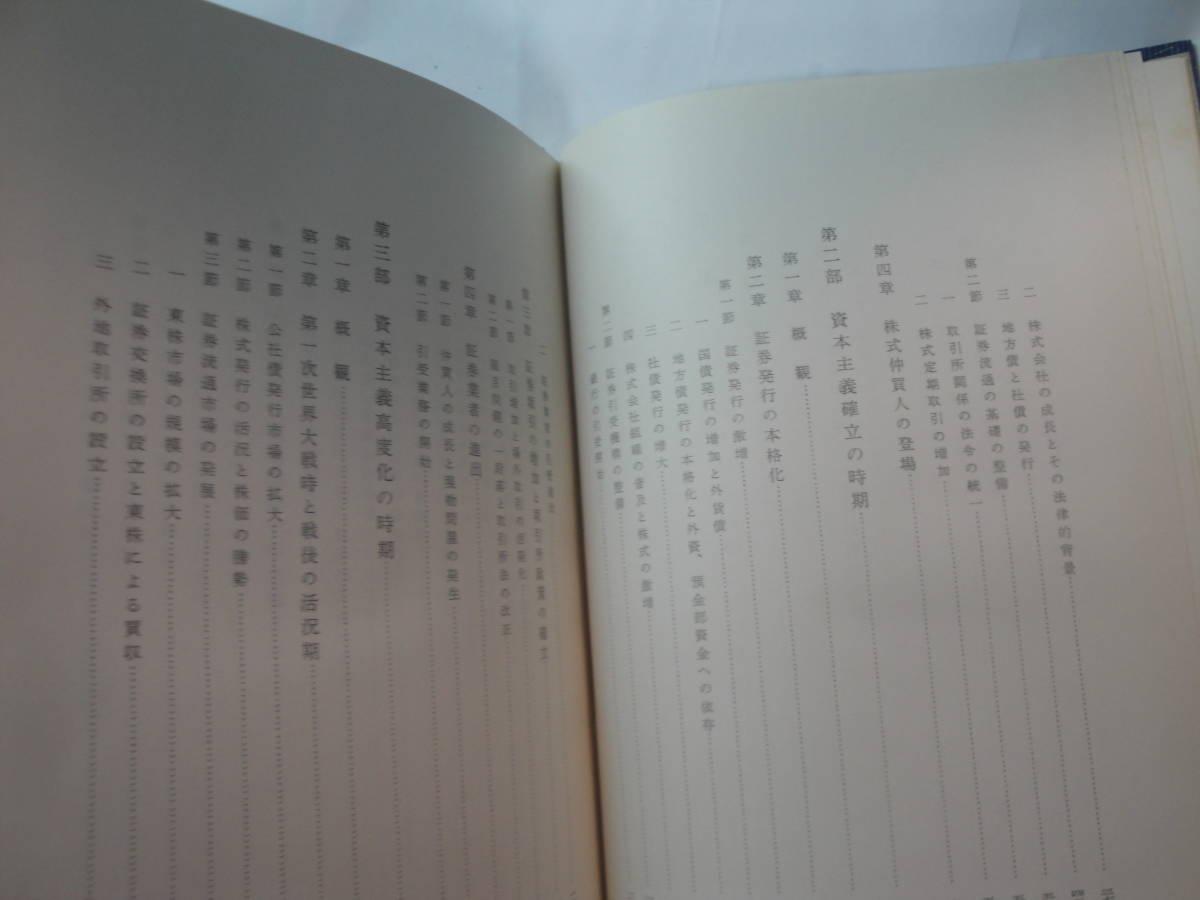 二 株式会社の成長とその法律的背景
三 地方債と社債の発行
第二節 証券流通の基礎の整備
一 取引所関係の法令の統一
二 株式定期取引の増加
第四章 株式仲買人の登場
第二部 資本主義確立の時期
第一章 概観
第二章 証券発行の本格化
第一節 証券発行の激増
一 国債発行の増加と外貨債
二 地方債発行の本格化と外資、預金部資金への依存
三 社債発行の増大
四 株式会社組織の普及と株式の激増
第二節 証券引受機構の整備
一 銀行の引受開始
第三章 証券取引の増加と取引所政策の確立
第一節 取引増加と場外取引の活発化
第二節 の一段落と取引所法の改正
第四章 証券業者の進出
第一節 仲買人の成長と現物問屋の発生
第二節 引受業務の開始
第三部 資本主義高度化の時期
第一章 概観
第二章 第一次世界大戦時と戦後の活況期
第一節 公社債発行市場の拡大
第二節 株式発行の活況と株価の騰勢
第三節 証券流通市場の発展
一 東株市場の規模の拡大
二 証券交換所の設立と東株による買収
三 外地取引所の設立